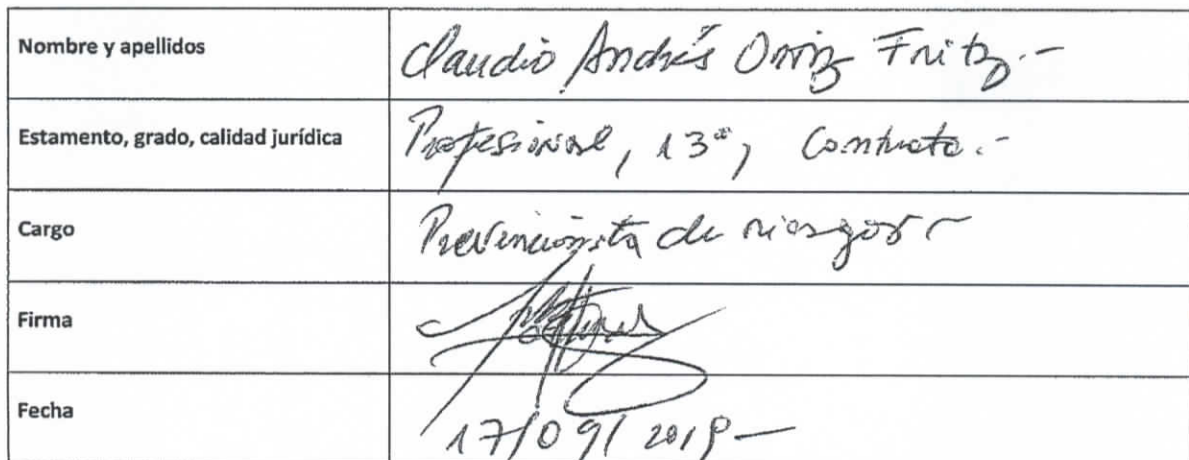 Nombre y apellidos Claudio Andrés Ortiz Fritz.-
Estamento, grado, calidad jurídica Profesional, 13°, Contrata.-
Cargo Prevencionista de riesgos-
Firma
Fecha 17/09/2018-